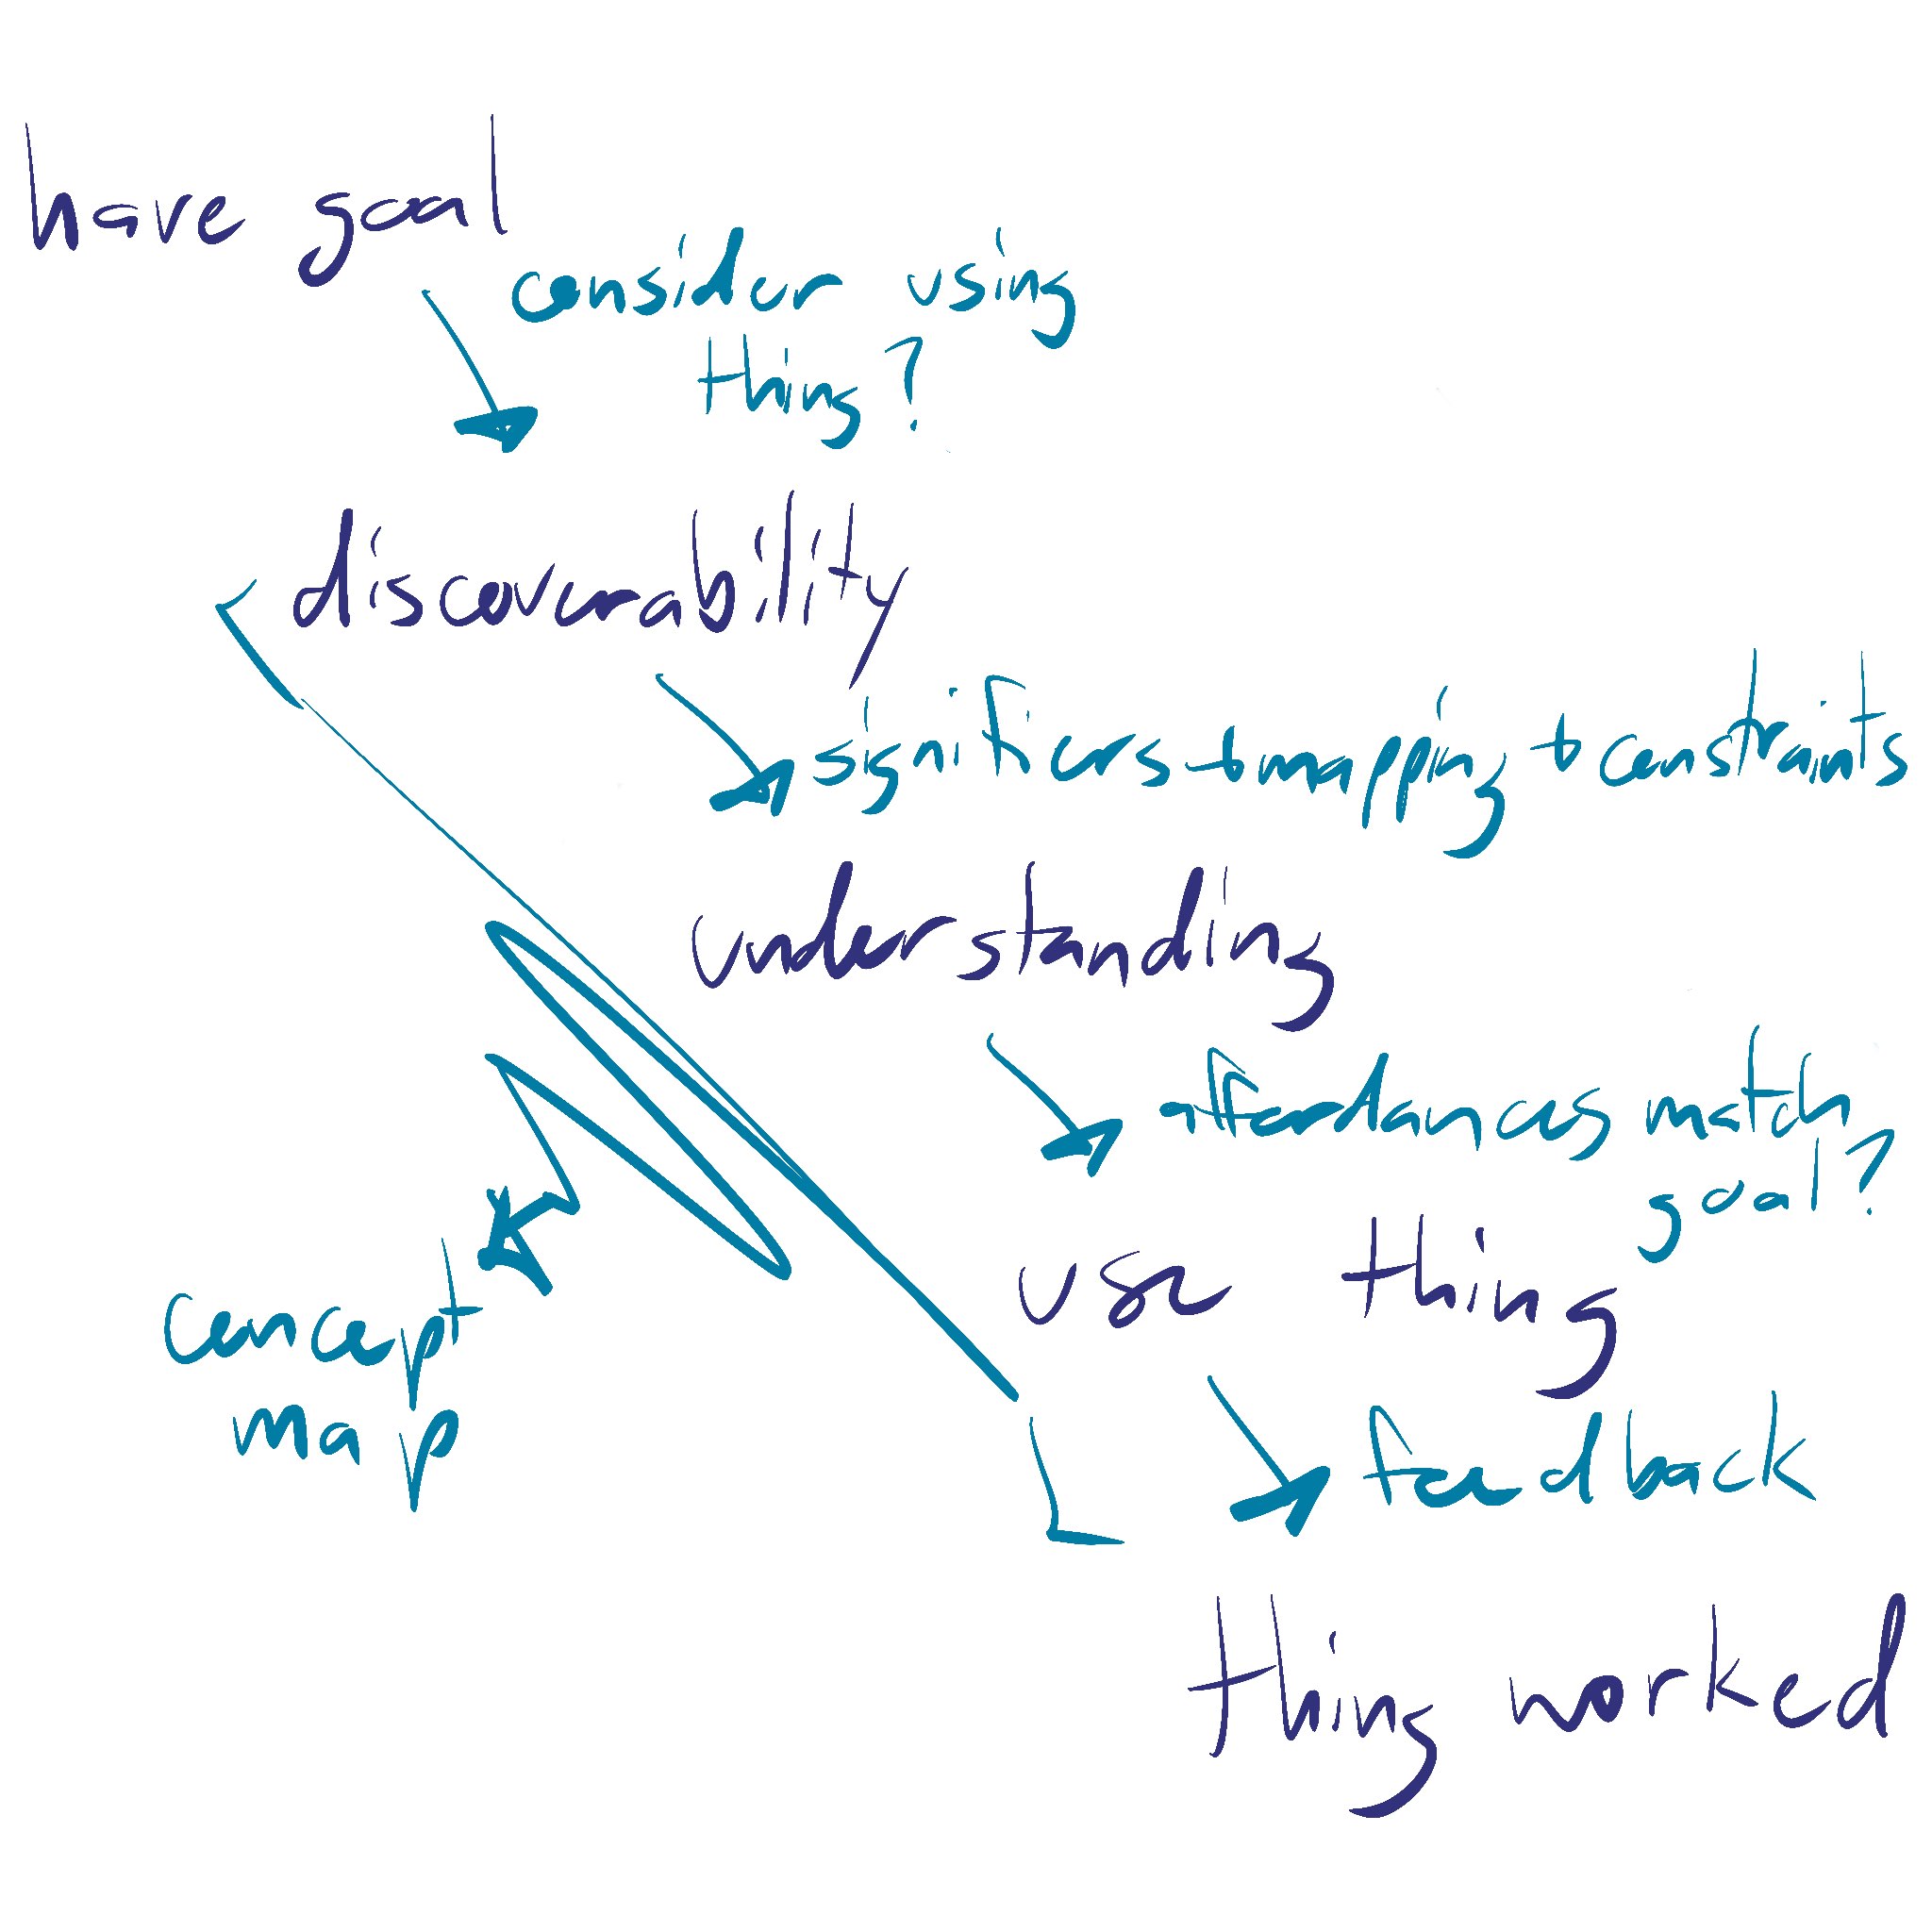 have goal
consider using
thing?
discoverability
signifiers + mapping + constraints
understanding
affordances match
goal?
use thing
concept
map
feedback
thing worked